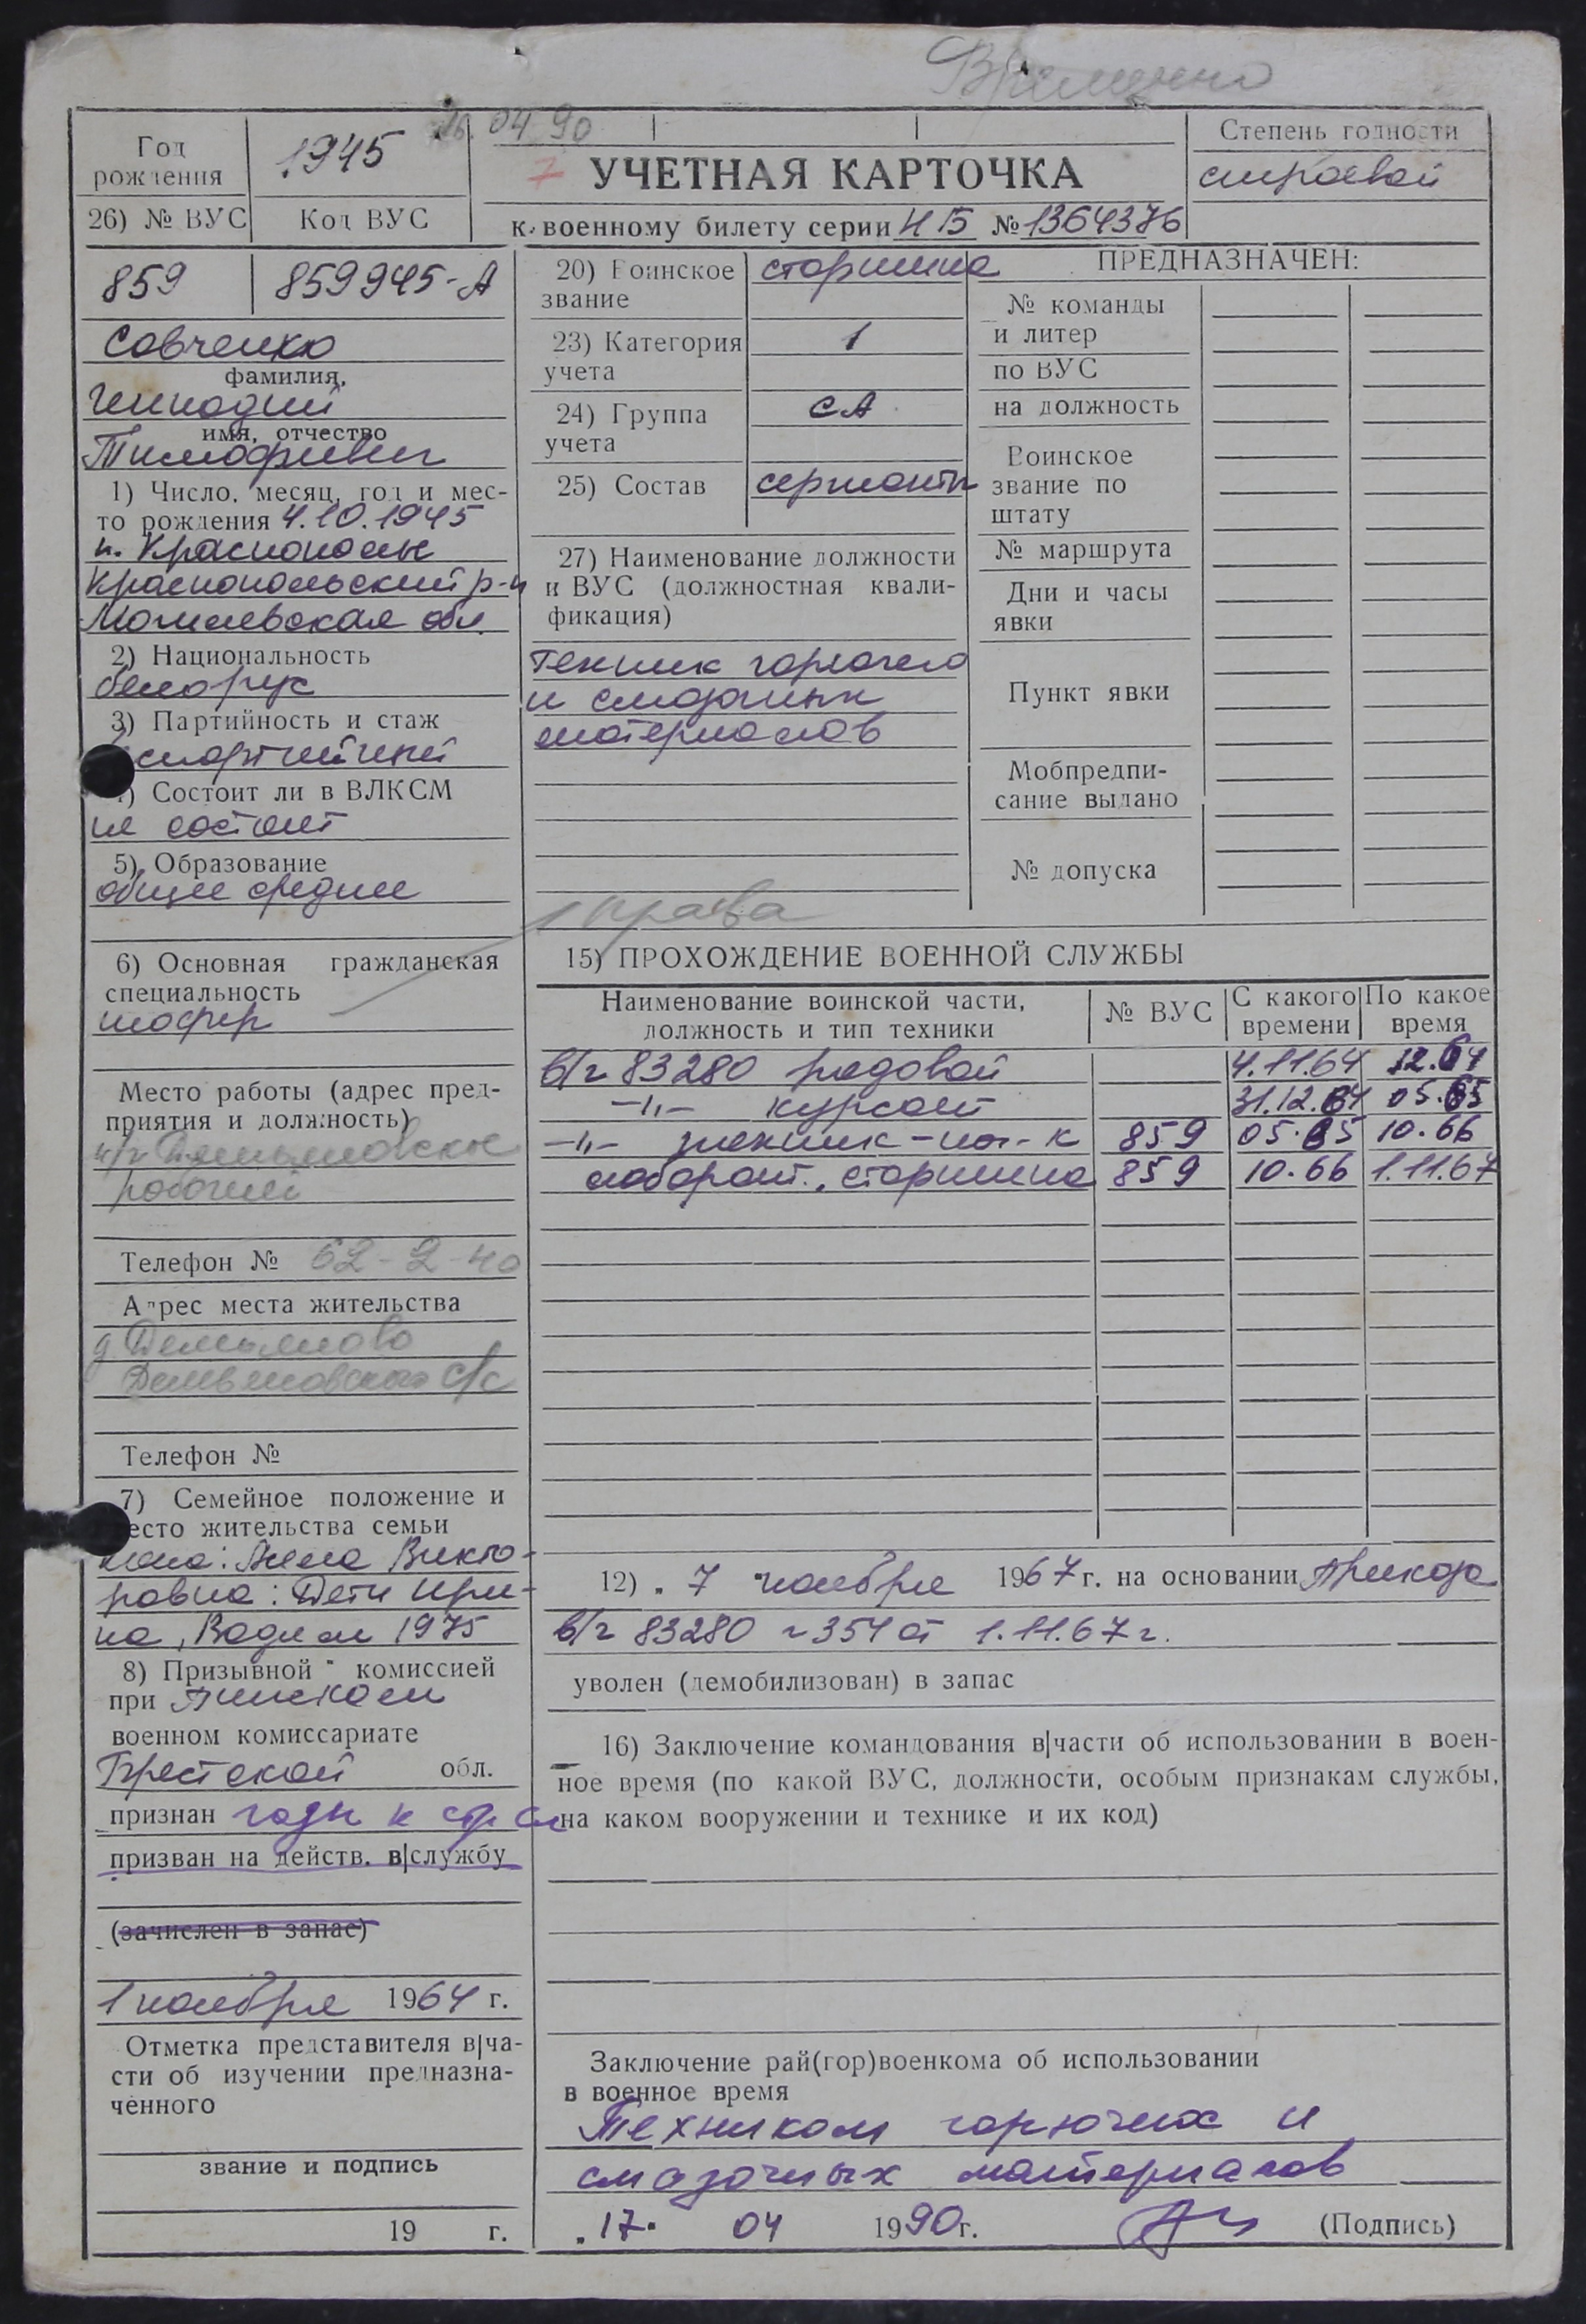 Временно
16.04 90
Год
рождения
1945
7 УЧЕТНАЯ КАРТОЧКА
к военному билету серии НБ № 1364376
Степень годности
строевой
26) № ВУС
Код ВУС
859
859945-А
Савченко
фамилия,
Геннадий
имя, отчество
Тимофеевич
1) Число, месяц, год и мес-
то рождения 4.10.1945
п. Краснополье
Краснопольский р-н
Могилевская обл.
2) Национальность
белорус
3) Партийность и стаж
беспартийный
4) Состоит ли в ВЛКСМ
не состоит
5) Образование
общее среднее
6) Основная гражданская
специальность
шофер
Место работы (адрес пред-
приятия и должность)
рабочий
Телефон № 62-2-40
Адрес места жительства
д. Демьяново
Демьяновского с/с
Телефон №
7) Семейное положение и
место жительства семьи
жена: Анна Викто-
ровна: Дети Ири-
на, Вадим 1975
8) Призывной комиссией
при Пинском
военном комиссариате
Брестской обл.
признан годн к стр сл
призван на действ. в|службу
(зачислен в запас)
1 ноября 1964 г.
Отметка представителя в|ча-
сти об изучении предназна-
ченного
звание и подпись
19 г.
20) Воинское
звание
старшина
23) Категория
учета
1
24) Группа
учета
СА
25) Состав
сержанты
27) Наименование должности
и ВУС (должностная квали-
фикация)
Техник горючего
и смазочных
материалов
права
ПРЕДНАЗНАЧЕН:
№ команды
и литер
по ВУС
на должность
Воинское
звание по
штату
№ маршрута
Дни и часы
явки
Пункт явки
Мобпредпи-
сание выдано
№ допуска
15) ПРОХОЖДЕНИЕ ВОЕННОЙ СЛУЖБЫ
Наименование воинской части,
должность и тип техники
№ ВУС
С какого
времени
По какое
время
в/ч 83280 рядовой 4.11.64 12.64
-"- курсант 31.12.64 05.65
-"- техник-на-к 859 05.65 10.66
лаборат., старшина 859 10.66 1.11.67
12) "7" ноября 1967 г. на основании Приказа
в/ч 83280 N 354 от 1.11.67 г.
уволен (демобилизован) в запас
16) Заключение командования в|части об использовании в воен-
ное время (по какой ВУС, должности, особым признакам службы,
на каком вооружении и технике и их код)
Заключение рай(гор)военкома об использовании
в военное время
Техником горючих и
смазочных материалов
"17" 04 1990 г. (Подпись)